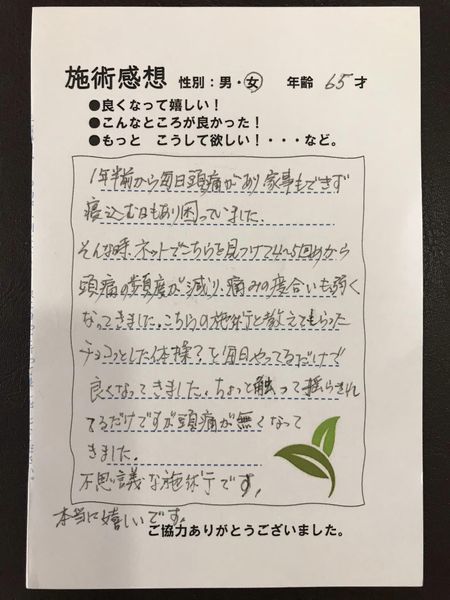 施術感想 性別：男・女 年齢 65才
●良くなって嬉しい！
●こんなところが良かった！
●もっと こうして欲しい！・・・など。
1年半前から毎日頭痛があり家事もできず
寝込む日もあり困っていました。
そんな時、ネットでこちらを見つけて4〜5回めから
頭痛の頻度が減り、痛みの度合いも弱く
なってきました。こちらの施術と教えてもらった
チョコっとした体操？を毎日やってるだけで
良くなってきました。ちょっと触って揺らされ
てるだけですが頭痛が無くなって
きました。
不思議な施術です。
本当に嬉しいです。
ご協力ありがとうございました。